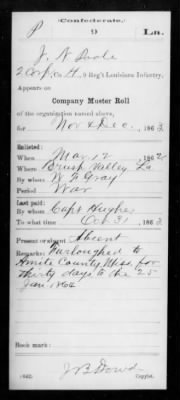 Confederate.
P 9 La.
J. N. Poole
2 Corp, Co. H, 9 Reg't Louisiana Infantry.
Appears on
Company Muster Roll
of the organization named above,
for Nov & Dec, 1863.
Enlisted:
When Mar 12, 1862
Where Brush Valley La
By whom W. F. Gray
Period War
Last paid:
By whom Capt Hughes
To what time Oct 31, 1863
Present or absent Absent
Remarks: Furloughed to
Amite County, Miss. for
thirty days to the 25
Jan 1864
Book mark:
J B Dowd
(642) Copyist.